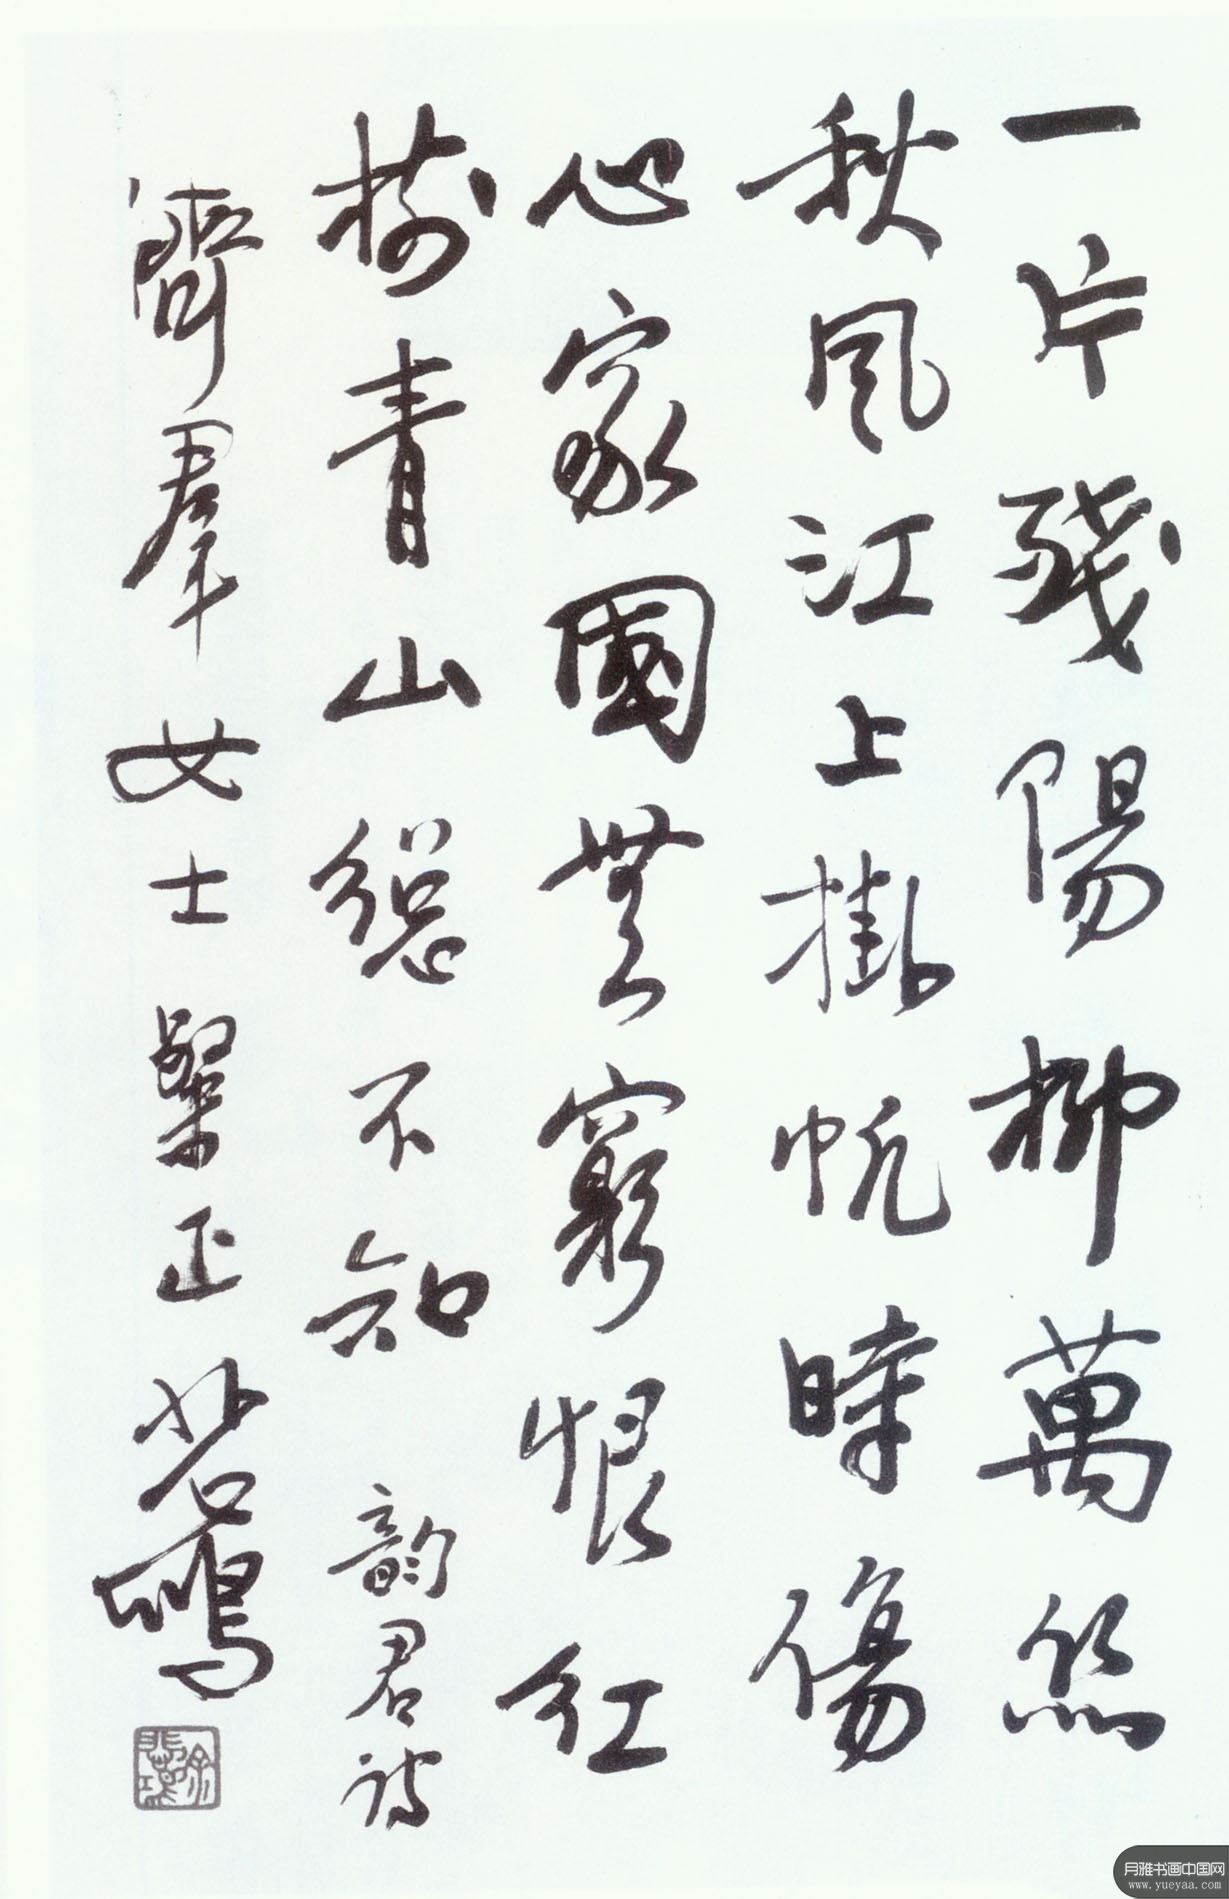 一片殘陽柳萬絲
秋風江上掛帆時傷
心家國無窮恨紅
樹青山總不知 韵君詩
濟羣女士粲正 悲鴻
徐悲鴻
月雅书画中国网
www.yueyaa.com